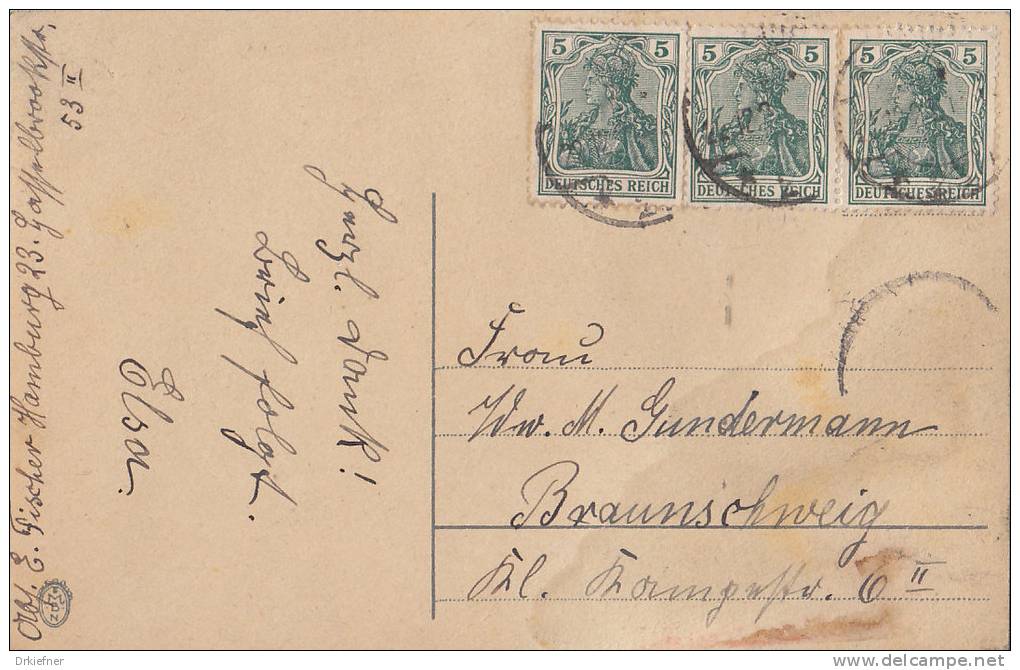 Abs. E. Fischer Hamburg 23. Hasselbrookstr.
53 II
Herzl. Dank!
Brief folgt.
Elsa.
5 5
DEUTSCHES REICH
5 5
DEUTSCHES REICH
5 5
DEUTSCHES REICH
Frau
Ww. M. Gundermann
Braunschweig
Kl. Kampstr. 6 II
Drkiefner
delcampe.net